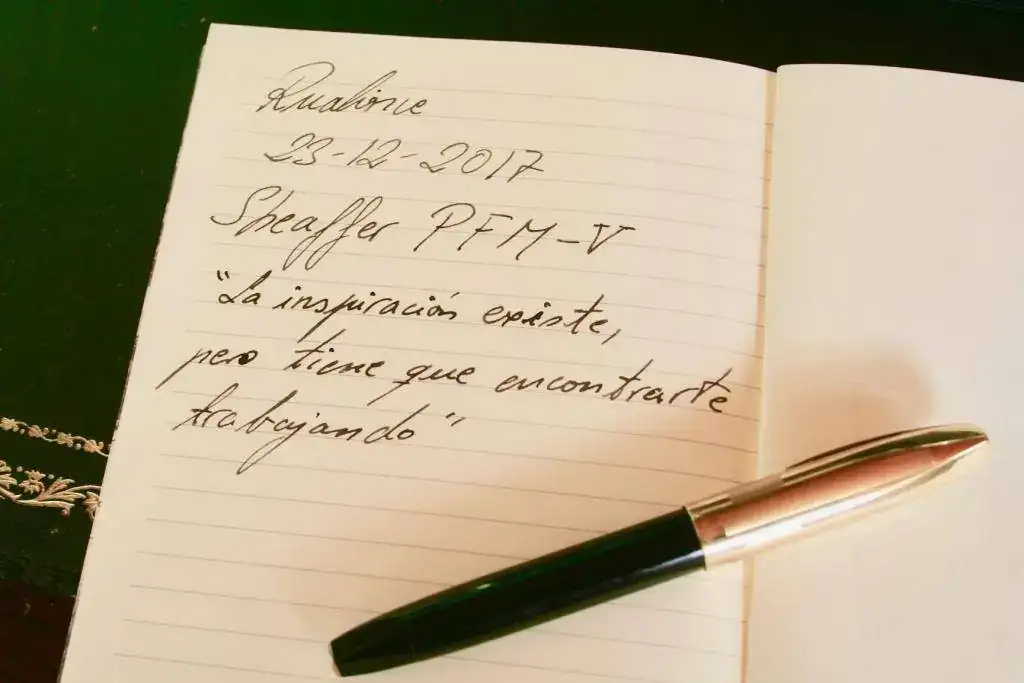 23-12-2017
Sheaffer PFM-V
"La inspiración existe,
pero tiene que encontrarte
trabajando"